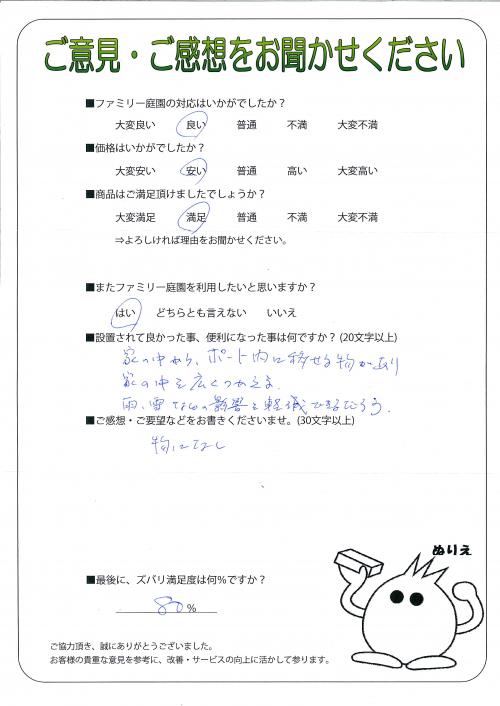 ご意見・ご感想をお聞かせください
■ファミリー庭園の対応はいかがでしたか？
大変良い 良い 普通 不満 大変不満
■価格はいかがでしたか？
大変安い 安い 普通 高い 大変高い
■商品はご満足頂けましたでしょうか？
大変満足 満足 普通 不満 大変不満
⇒よろしければ理由をお聞かせください。
■またファミリー庭園を利用したいと思いますか？
はい どちらとも言えない いいえ
■設置されて良かった事、便利になった事は何ですか？(20文字以上)
家の中から、ポート内に移せる物があり
家の中を広くつかえます
雨、雪などの影響を軽減できるだろう.
■ご感想・ご要望などをお書きくださいませ。(30文字以上)
特になし
ぬりえ
■最後に、ズバリ満足度は何%ですか？
80%
ご協力頂き、誠にありがとうございました。
お客様の貴重な意見を参考に、改善・サービスの向上に活かして参ります。